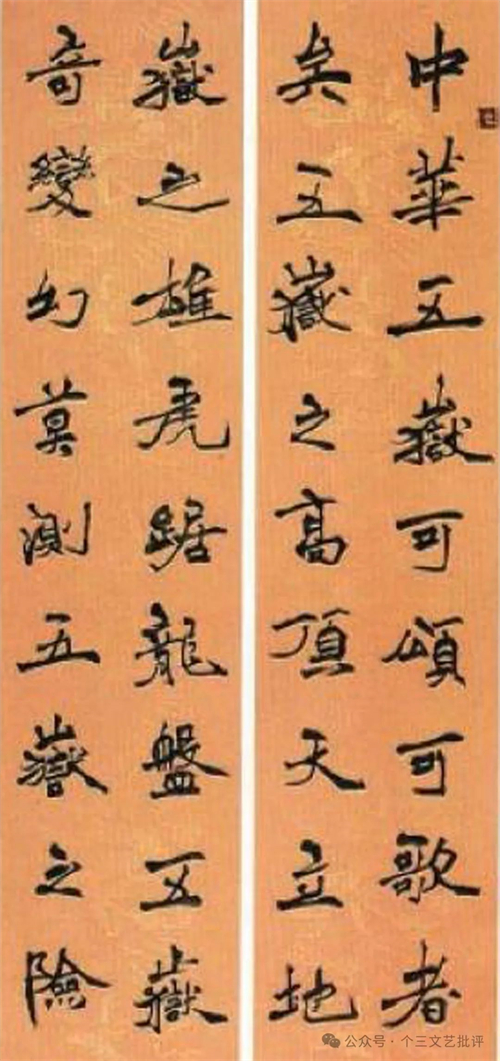 中華五嶽可頌可歌者
矣五嶽之高頂天立地
嶽之雄虎踞龍盤五嶽
奇變幻莫測五嶽之險
公众号 · 个三文艺批评